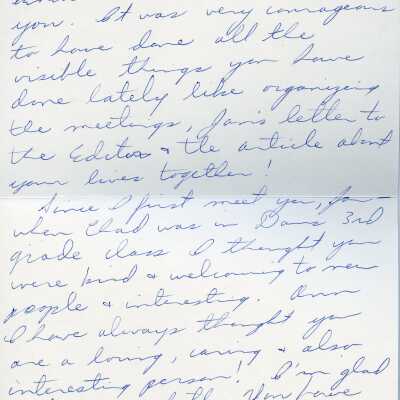 you. It was very courageous
to have done all the
visible things you have
done lately like organizing
the meetings, Jan's letter to
the Editor & the article about
your lives together!
Since I first meet you, Jan—
when Chad was in Dans 3rd
grade class I thought you
were kind & welcoming to new
people & interesting. Ann
I have always thought you
are a loving, caring & also
interesting person! I'm glad
You have